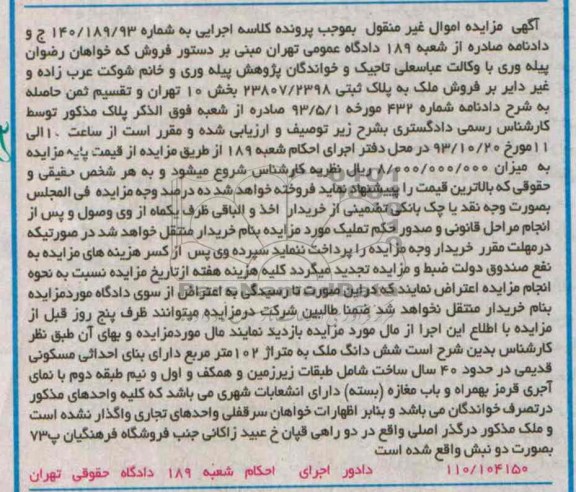 آگهی مزایده اموال غیر منقول بموجب پرونده کلاسه اجرایی به شماره ۱۴۰/۱۸۹/۹۳ ج و
دادنامه صادره از شعبه ۱۸۹ دادگاه عمومی تهران مبنی بر دستور فروش که خواهان رضوان
پیله وری با وکالت عباسعلی تاجیک و خواندگان پژوهش پیله وری و خانم شوکت عرب زاده و
غیر دایر بر فروش ملک به پلاک ثبتی ۲۳۸۰۷/۲۳۹۸ بخش ۱۰ تهران و تقسیم ثمن حاصله
به شرح دادنامه شماره ۴۳۲ مورخه ۹۳/۵/۱ صادره از شعبه فوق الذکر پلاک مذکور توسط
کارشناس رسمی دادگستری بشرح زیر توصیف و ارزیابی شده و مقرر است از ساعت ۱۰ الی
۱۱ مورخ ۹۳/۱۰/۲۰ در محل دفتر اجرای احکام شعبه ۱۸۹ از طریق مزایده از قیمت پایه مزایده
به میزان ۸/۰۰۰/۰۰۰/۰۰۰ ریال نظریه کارشناس شروع میشود و به هر شخص حقیقی و
حقوقی که بالاترین قیمت را پیشنهاد نماید فروخته خواهد شد ده درصد وجه مزایده فی المجلس
بصورت وجه نقد یا چک بانکی تضمینی از خریدار اخذ و الباقی ظرف یکماه از وی وصول و پس از
انجام مراحل قانونی و صدور حکم تملیک مورد مزایده بنام خریدار منتقل خواهد شد در صورتیکه
درمهلت مقرر خریدار وجه مزایده را پرداخت ننماید سپرده وی پس از کسر هزینه های مزایده به
نفع صندوق دولت ضبط و مزایده تجدید میگردد کلیه هزینه هفته ازتاریخ مزایده نسبت به نحوه
انجام مزایده اعتراض نمایند که دراین صورت تا رسیدگی به اعتراض از سوی دادگاه موردمزایده
بنام خریدار منتقل نخواهد شد ضمنا طالبین شرکت درمزایده میتوانند ظرف پنج روز قبل از
مزایده با اطلاع این اجرا از مال مورد مزایده بازدید نمایند مال موردمزایده و بهای آن طبق نظر
کارشناس بدین شرح است شش دانگ ملک به متراژ ۱۰۲ متر مربع دارای بنای احداثی مسکونی
قدیمی در حدود ۴۰ سال ساخت شامل طبقات زیرزمین و همکف و اول و نیم طبقه دوم با نمای
آجری قرمز بهمراه و باب مغازه (بسته) دارای انشعابات شهری می باشد که کلیه واحدهای مذکور
درتصرف خواندگان می باشد و بنابر اظهارات خواهان سرقفلی واحدهای تجاری واگذار نشده است
و ملک مذکور درگذر اصلی واقع در دو راهی قپان خ عبید زاکانی جنب فروشگاه فرهنگیان پ۷۳
بصورت دو نبش واقع شده است
۱۱۰/۱۰۴۱۵۰ دادور اجرای احکام شعبه ۱۸۹ دادگاه حقوقی تهران